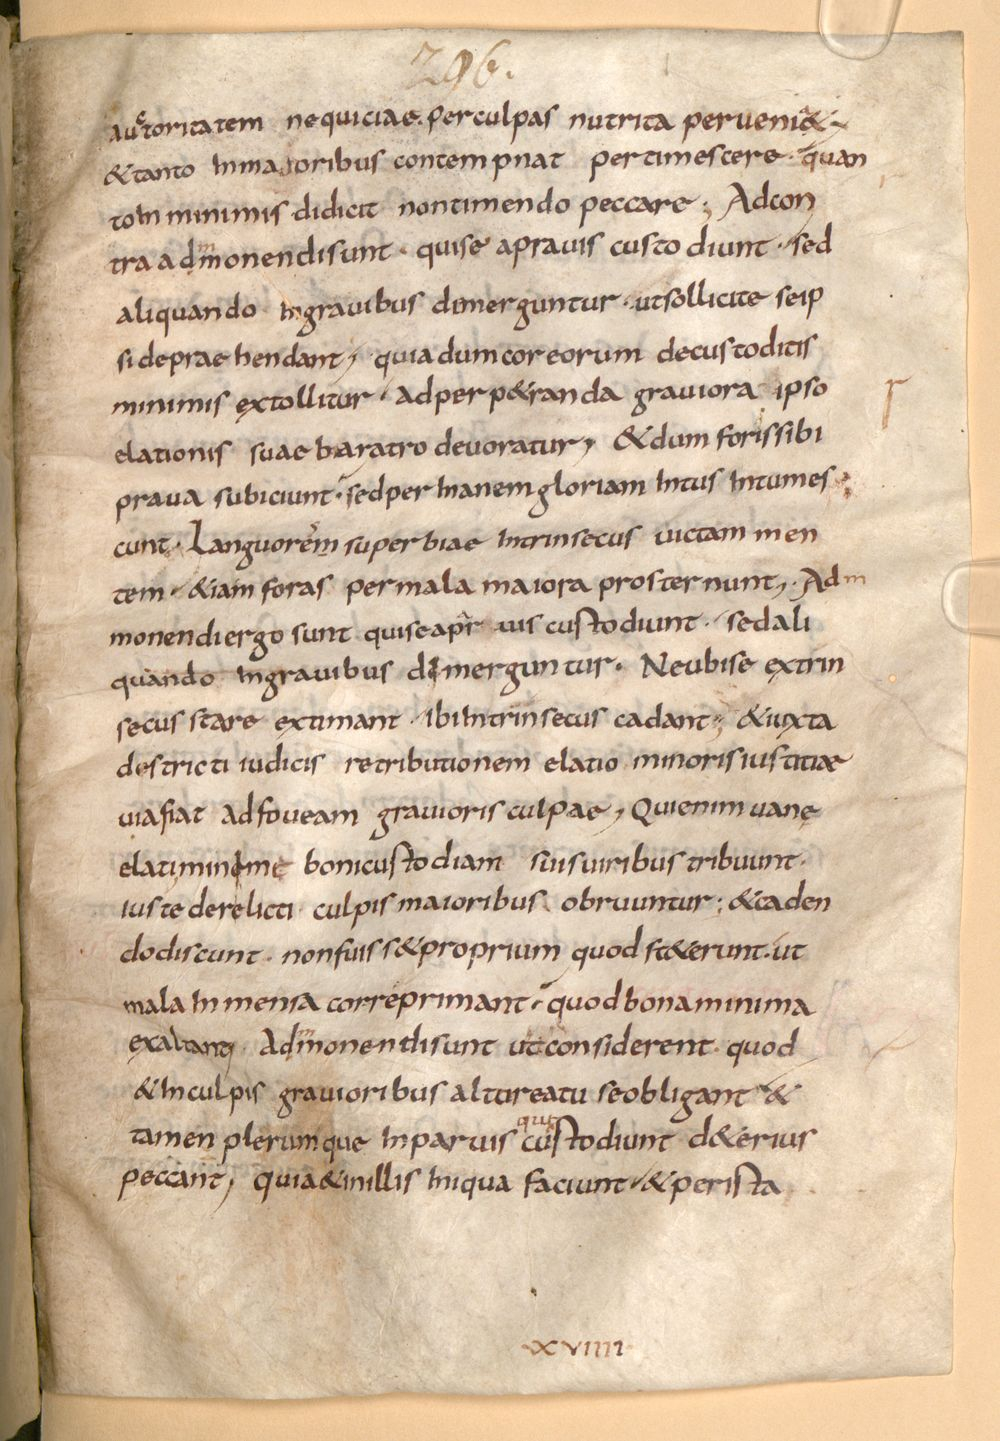 296.
auctoritatem nequiciae. Per culpas nutrita perueniat
& tanto In maioribus contempnat pertimescere. quan
to In minimis didicit non timendo peccare; Ad con
tra admmonendi sunt. qui se a prauis custodiunt. sed
aliquando In grauibus demerguntur. ut sollicite se ip
si deprae hendant, quia dum cor eorum de custoditis
minimis extollitur. Ad perp&randa grauiora ipso
elationis suae baratro deuoratur, & dum foris sibi
praua subiciunt. sed per Inanem gloriam Intus Intumes
cunt. Languorem superbiae Intrinsecus uictam men
tem. & iam foras per mala maiora prosternunt, Adm
monendi ergo sunt qui se a pra uis custodiunt. sed ali
quando In grauibus demerguntur. Ne ubi se extrin
secus stare extimant. Ibi Intrinsecus cadant; & iuxta
destricti iudicis retributionem elatio minoris iustitiae
uia fiat ad foueam grauioris culpae, Qui enim uane
elati minime boni custodiam suis uiribus tribuunt.
iuste derelicti culpis maioribus obruuntur; & caden
do discunt. non fuiss& proprium quod st&erunt. ut
mala Inmensa cor reprimant. quod bona minima
exaltant, Admmonendi sunt ut considerent. quod
& In culpis grauioribus alti reatu se obligant &
tamen plerumque In paruis custodiunt d&erius
peccant, quia & in illis Iniqua faciunt. & per ista
XVIIII